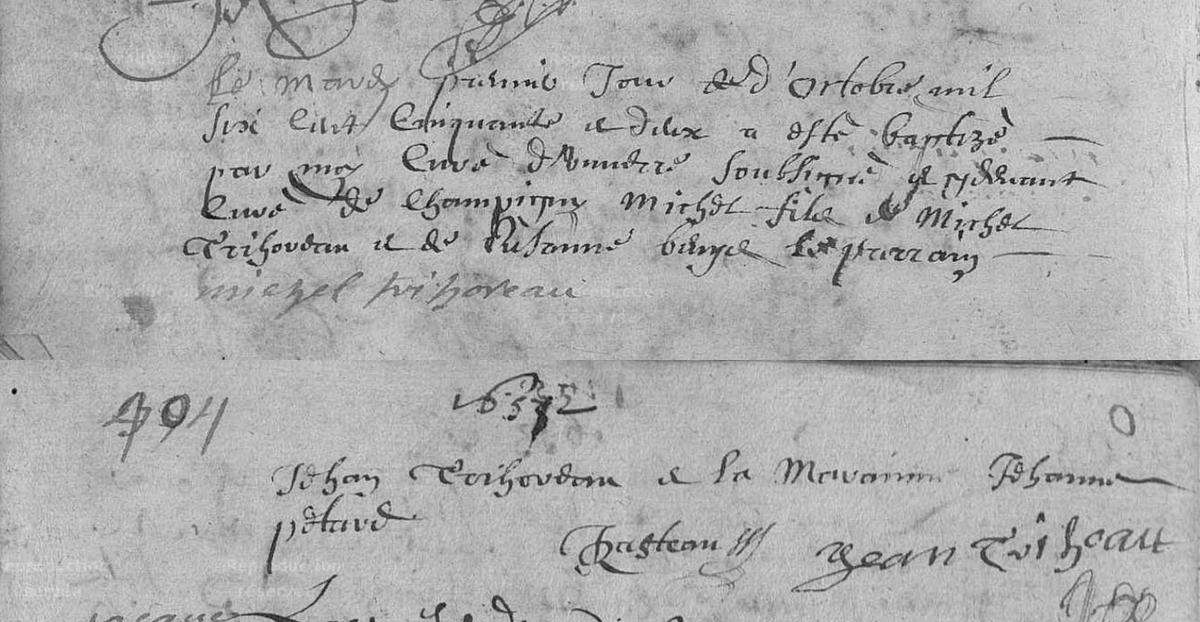 Le mardy premier Jour de d'octobre mil
six cent cinquante et deux a esté baptizé
par moy curé soubsigné et
curé de Champigny Michel filz de Michel
Trihoreau et de Susanne le parrain
michel trihoreau
494
1652
Jehan Trihoreau et la Maraine Jehanne
petard
Jean Triheau